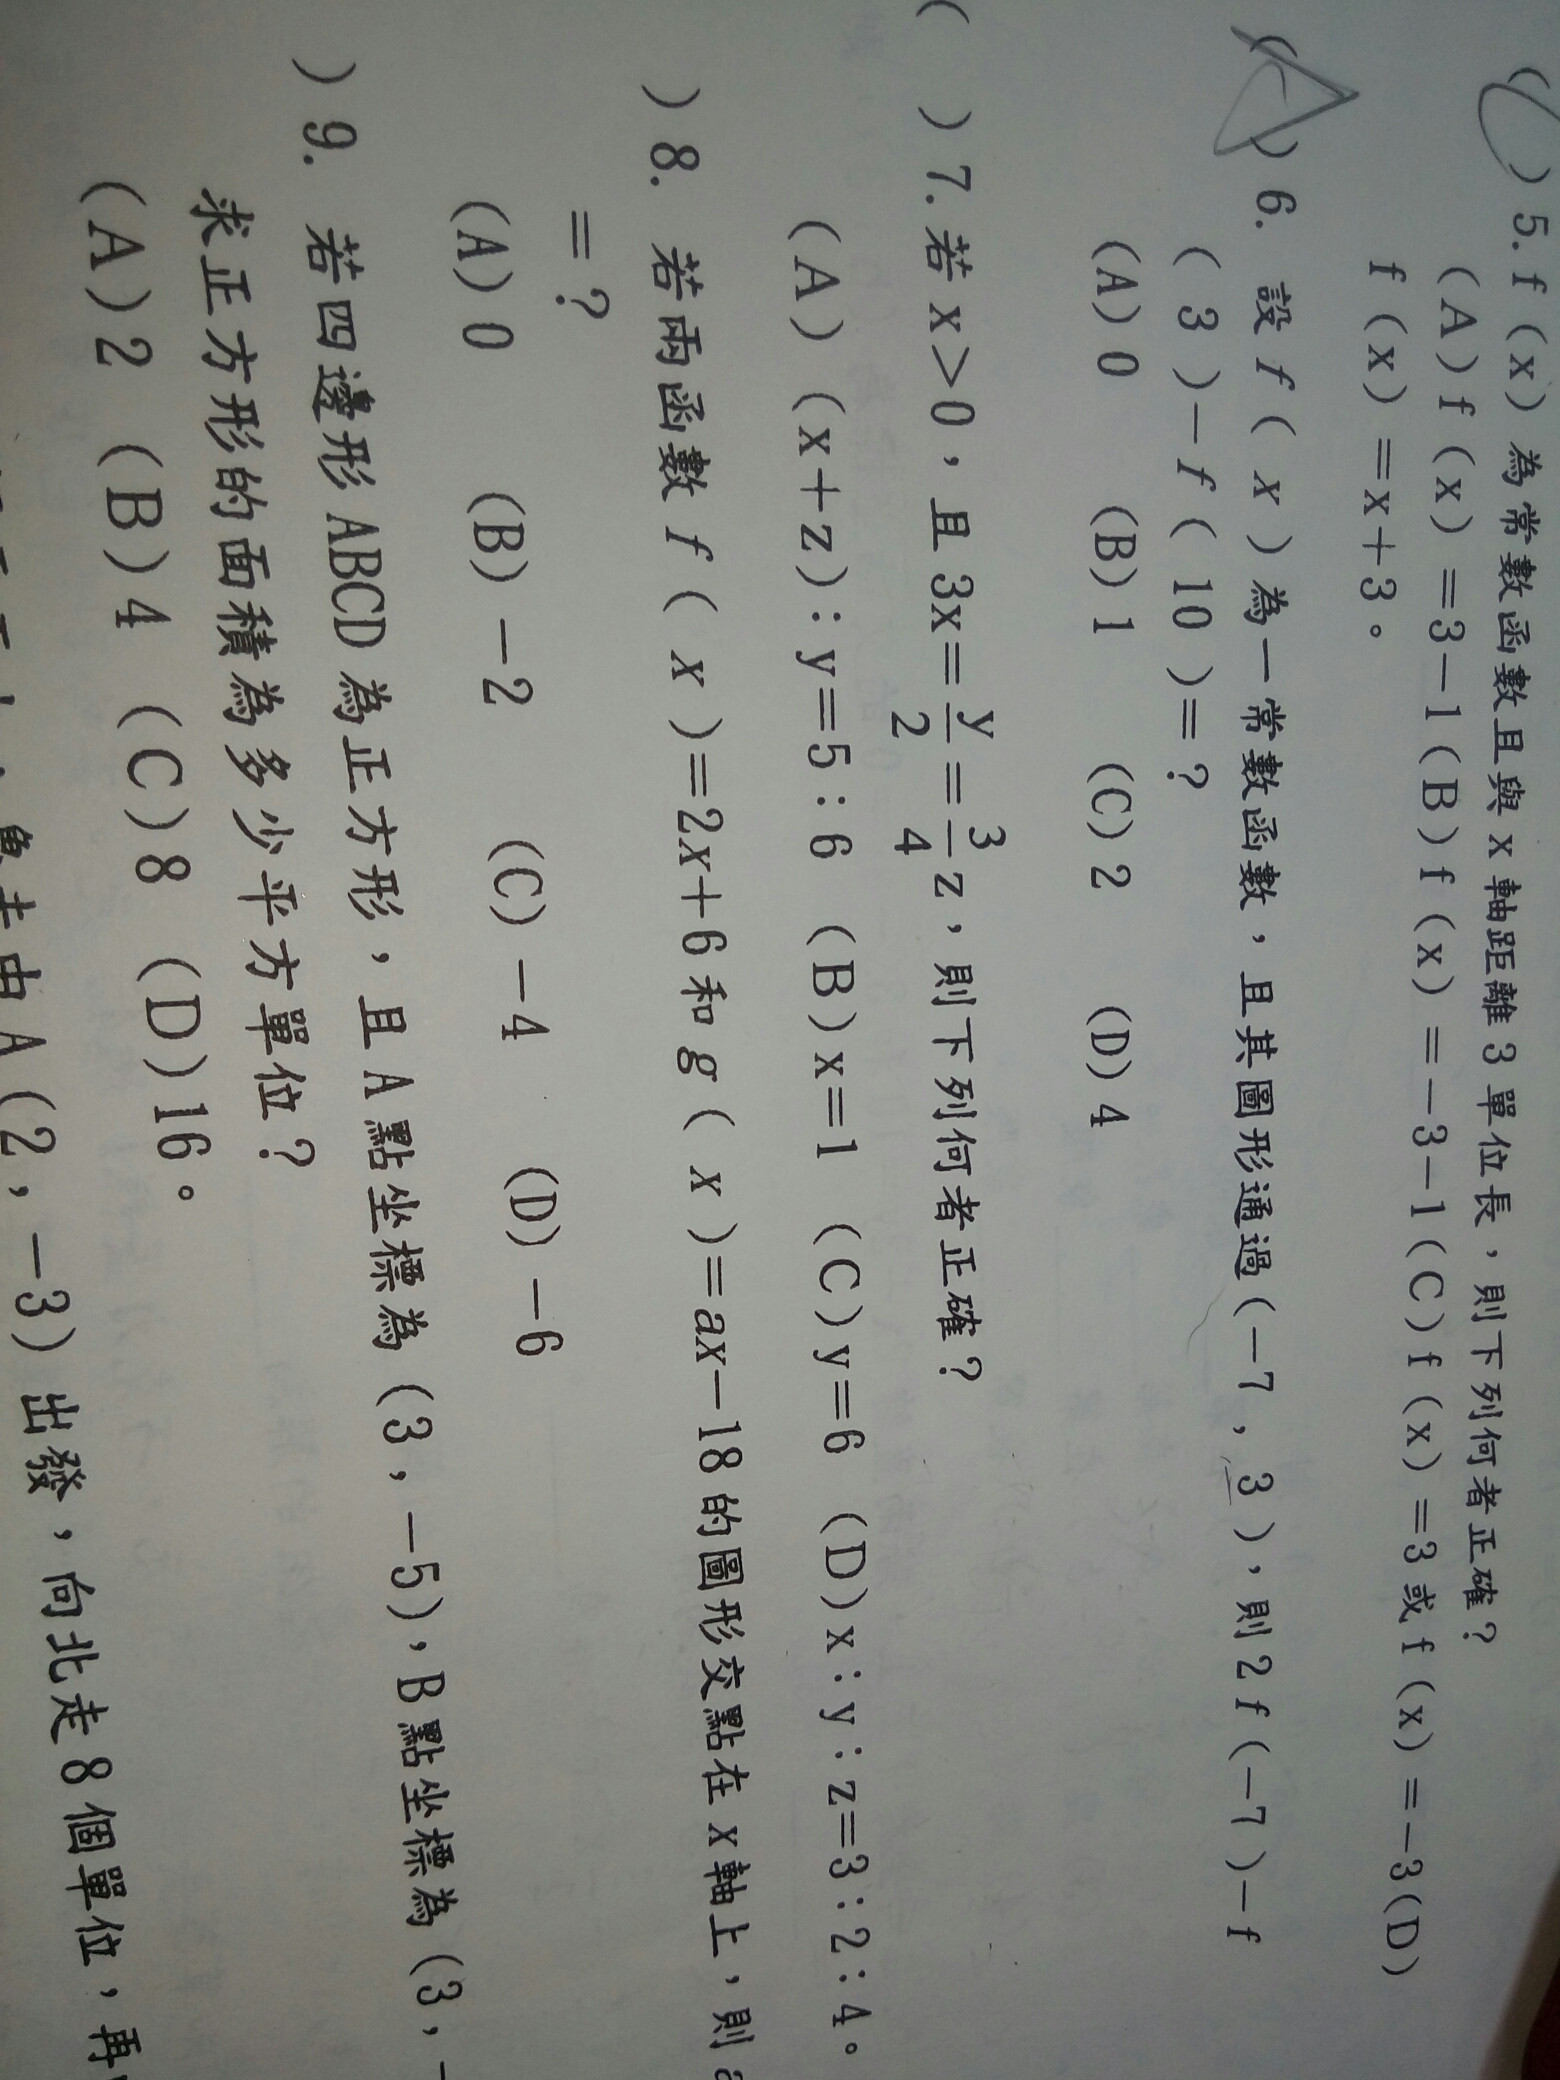 ( )5. f(x)為常數函數且與x軸距離3單位長，則下列何者正確？
(A)f(x)=3-1(B)f(x)=-3-1(C)f(x)=3或f(x)=-3(D)
f(x)=x+3。
( )6. 設f(x)為一常數函數，且其圖形通過(-7,3)，則2f(-7)-f
(3)-f(10)=?
(A)0 (B)1 (C)2 (D)4
( )7.若x>0，且3x=y/2=3/4z，則下列何者正確？
(A)(x+z):y=5:6 (B)x=1 (C)y=6 (D)x:y:z=3:2:4。
)8. 若兩函數f(x)=2x+6和g(x)=ax-18的圖形交點在x軸上，則a
=?
(A)0 (B)-2 (C)-4 (D)-6
)9. 若四邊形ABCD為正方形，且A點坐標為(3,-5)，B點坐標為(3,-
求正方形的面積為多少平方單位？
(A)2 (B)4 (C)8 (D)16。
由A(2,-3)出發，向北走8個單位，再